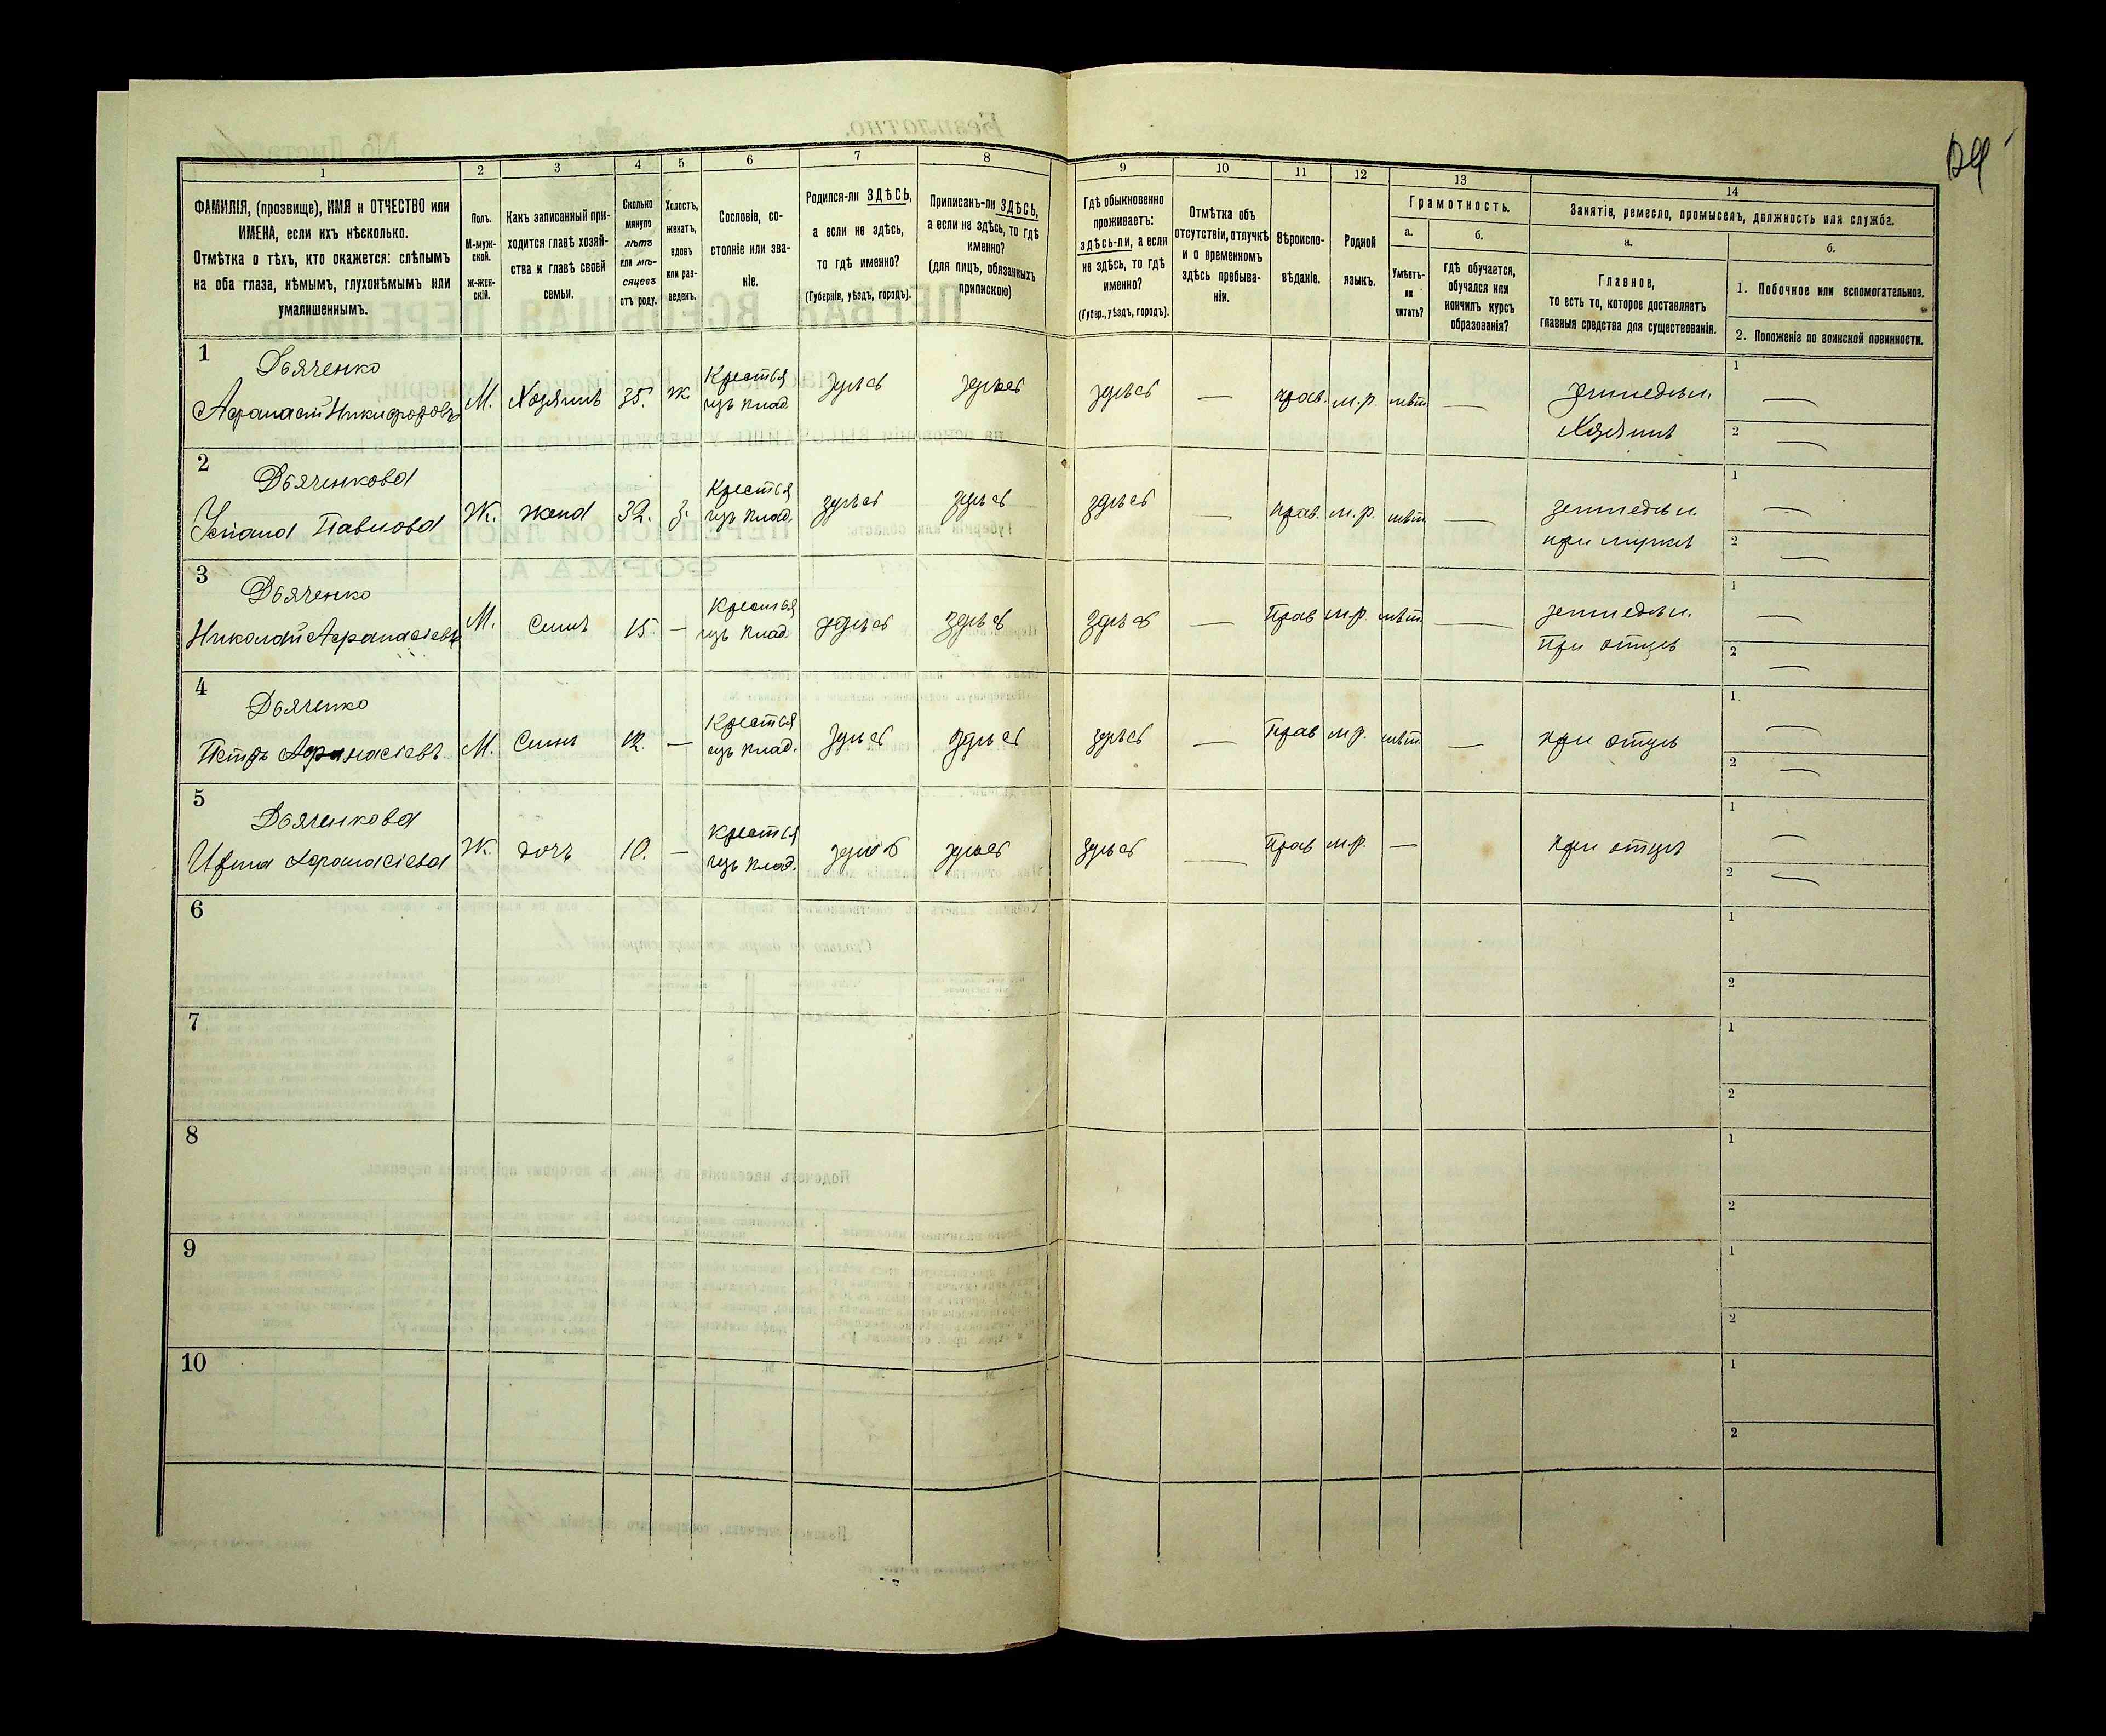 129
1 2 3 4 5 6 7 8 9 10 11 12 13 14
ФАМИЛІЯ, (прозвище), ИМЯ и ОТЧЕСТВО или ИМЕНА, если ихъ нѣсколько.
Отмѣтка о тѣхъ, кто окажется: слѣпымъ на оба глаза, нѣмымъ, глухонѣмымъ или умалишеннымъ.
Полъ. М-мужской. ж-женскій.
Какъ записанный приходится главѣ хозяйства и главѣ своей семьи.
Сколько минуло лѣтъ или мѣсяцевъ отъ роду.
Холостъ, женатъ, вдовъ или разведенъ.
Сословіе, состояніе или званіе.
Родился-ли ЗДѢСЬ, а если не здѣсь, то гдѣ именно?
(Губернія, уѣздъ, городъ).
Приписанъ-ли ЗДѢСЬ, а если не здѣсь, то гдѣ именно?
(для лицъ, обязанныхъ припискою)
Гдѣ обыкновенно проживаетъ: здѣсь-ли, а если не здѣсь, то гдѣ именно?
(Губер., уѣздъ, городъ).
Отмѣтка объ отсутствіи, отлучкѣ и о временномъ здѣсь пребываніи.
Вѣроисповѣданіе.
Родной языкъ.
Грамотность.
а. Умѣетъ-ли читать?
б. гдѣ обучается, обучался или кончилъ курсъ образованія?
Занятіе, ремесло, промыселъ, должность или служба.
а. Главное, то есть то, которое доставляетъ главныя средства для существованія.
б.
1. Побочное или вспомогательное.
2. Положеніе по воинской повинности.
1 Дьяченко
Афанасій Никифоровъ М. Хозяинъ 35. ж. Крестья изъ влад. здѣсь здѣсь здѣсь — прав. м.р. нѣт. — земледѣл. Хозяинъ 1 — 2 —
2 Дьяченкова
Павлова Ж. жена 32. з. Крестья изъ влад. здѣсь здѣсь здѣсь — прав. м.р. нѣт. — земледѣл. при мужѣ 1 — 2 —
3 Дьяченко
Николай Афанасіевъ М. Сынъ 15. — Крестья изъ влад. здѣсь здѣсь здѣсь — Прав м.р. нѣт. — земледѣл. При отцѣ 1 — 2 —
4 Дьяченко
Петръ Афанасіевъ М. Сынъ 12. — Крестья изъ влад. здѣсь здѣсь здѣсь — Прав м.р. нѣт. — при отцѣ 1 — 2 —
5 Дьяченкова
Афанасіева Ж. дочь 10. — Крестья изъ влад. здѣсь здѣсь здѣсь — Прав м.р. — при отцѣ 1 — 2 —
6 1 2
7 1 2
8 1 2
9 1 2
10 1 2